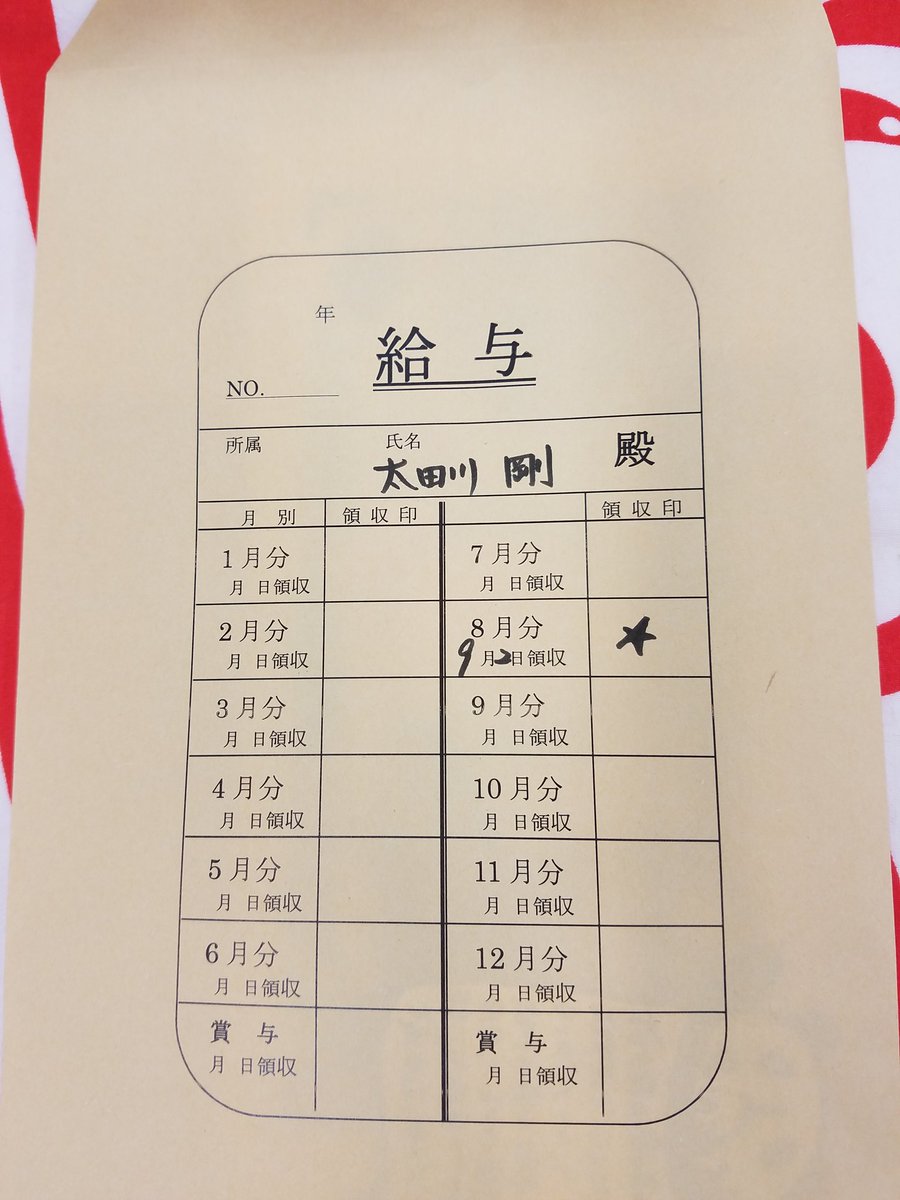 年
給与
NO.
所属 氏名 殿
太田川 剛
月別 領収印 領収印
1月分 7月分
月 日領収 月 日領収
2月分 8月分 ★
月 日領収 9月2日領収
3月分 9月分
月 日領収 月 日領収
4月分 10月分
月 日領収 月 日領収
5月分 11月分
月 日領収 月 日領収
6月分 12月分
月 日領収 月 日領収
賞与 賞与
月 日領収 月 日領収